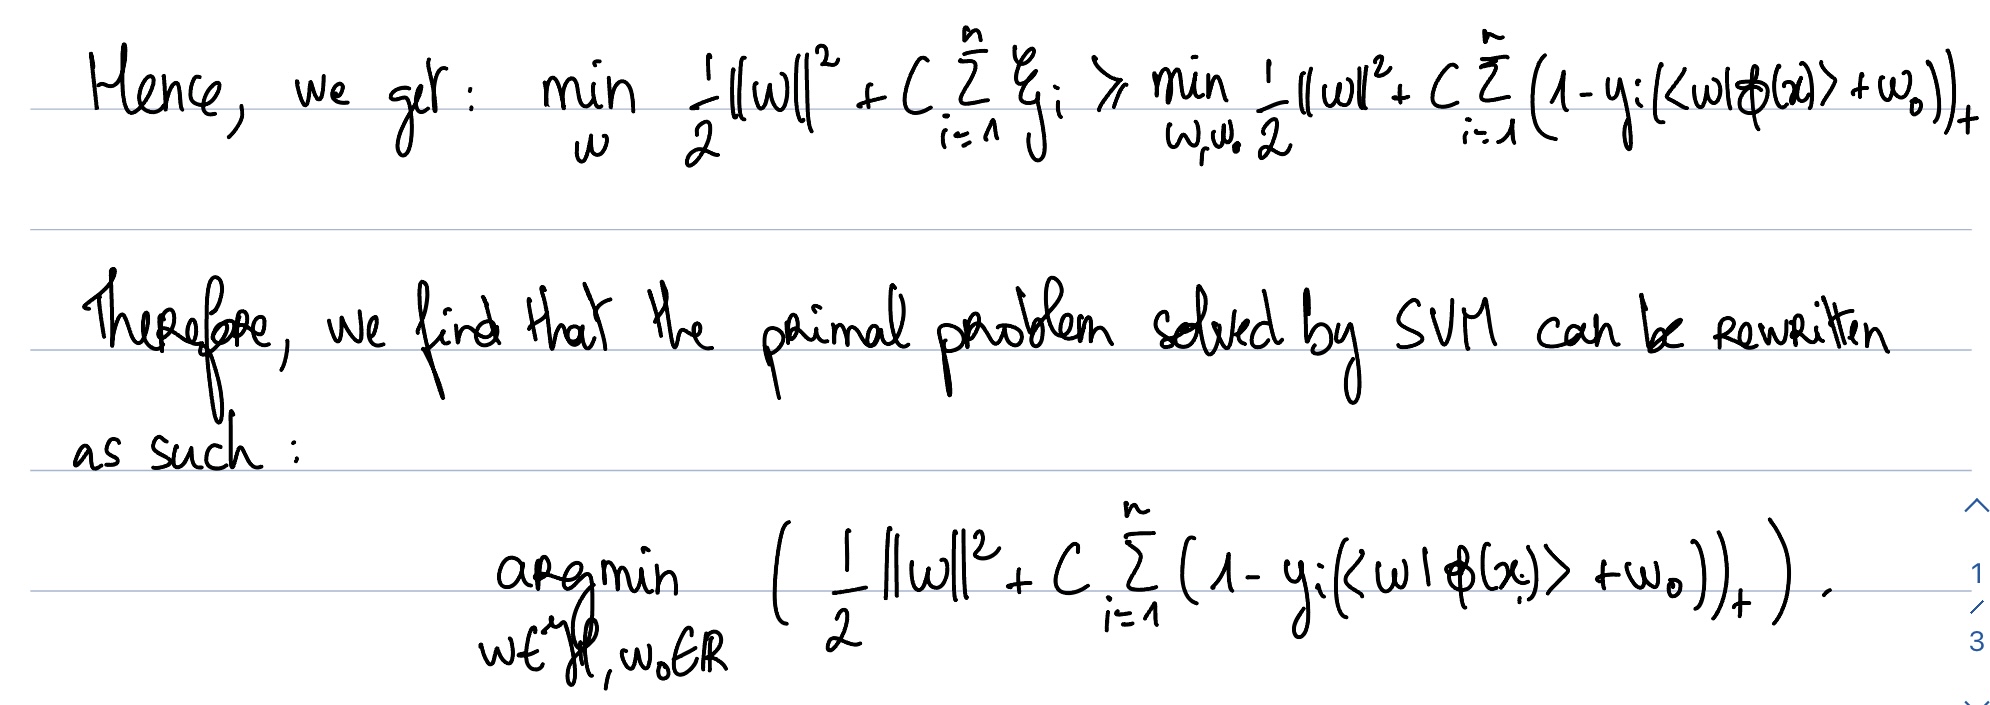 Hence, we get : min_w 1/2 ||w||² + C Σ_{i=1}^n ξ_i ⩾ min_{w,w₀} 1/2 ||w||² + C Σ_{i=1}^n (1 - y_i(<w|φ(x)> + w₀))_+
Therefore, we find that the primal problem solved by SVM can be rewritten
as such :
argmin_{w∈ℋ, w₀∈ℝ} ( 1/2 ||w||² + C Σ_{i=1}^n (1 - y_i(<w|φ(x_i)> + w₀))_+ ) .
1
/
3